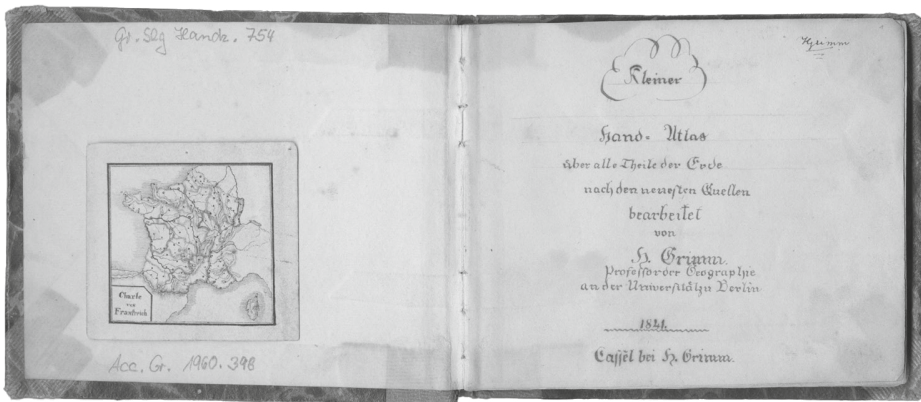 Gr. Slg Handz. 754
Charte
von
Frankreich
Acc. Gr. 1960. 398
HGrimm
Kleiner
Hand-Atlas
über alle Theile der Erde
nach den neuesten Quellen
bearbeitet
von
H. Grimm.
Professor der Geographie
an der Universität zu Berlin
1841.
Cassel bei H. Grimm.